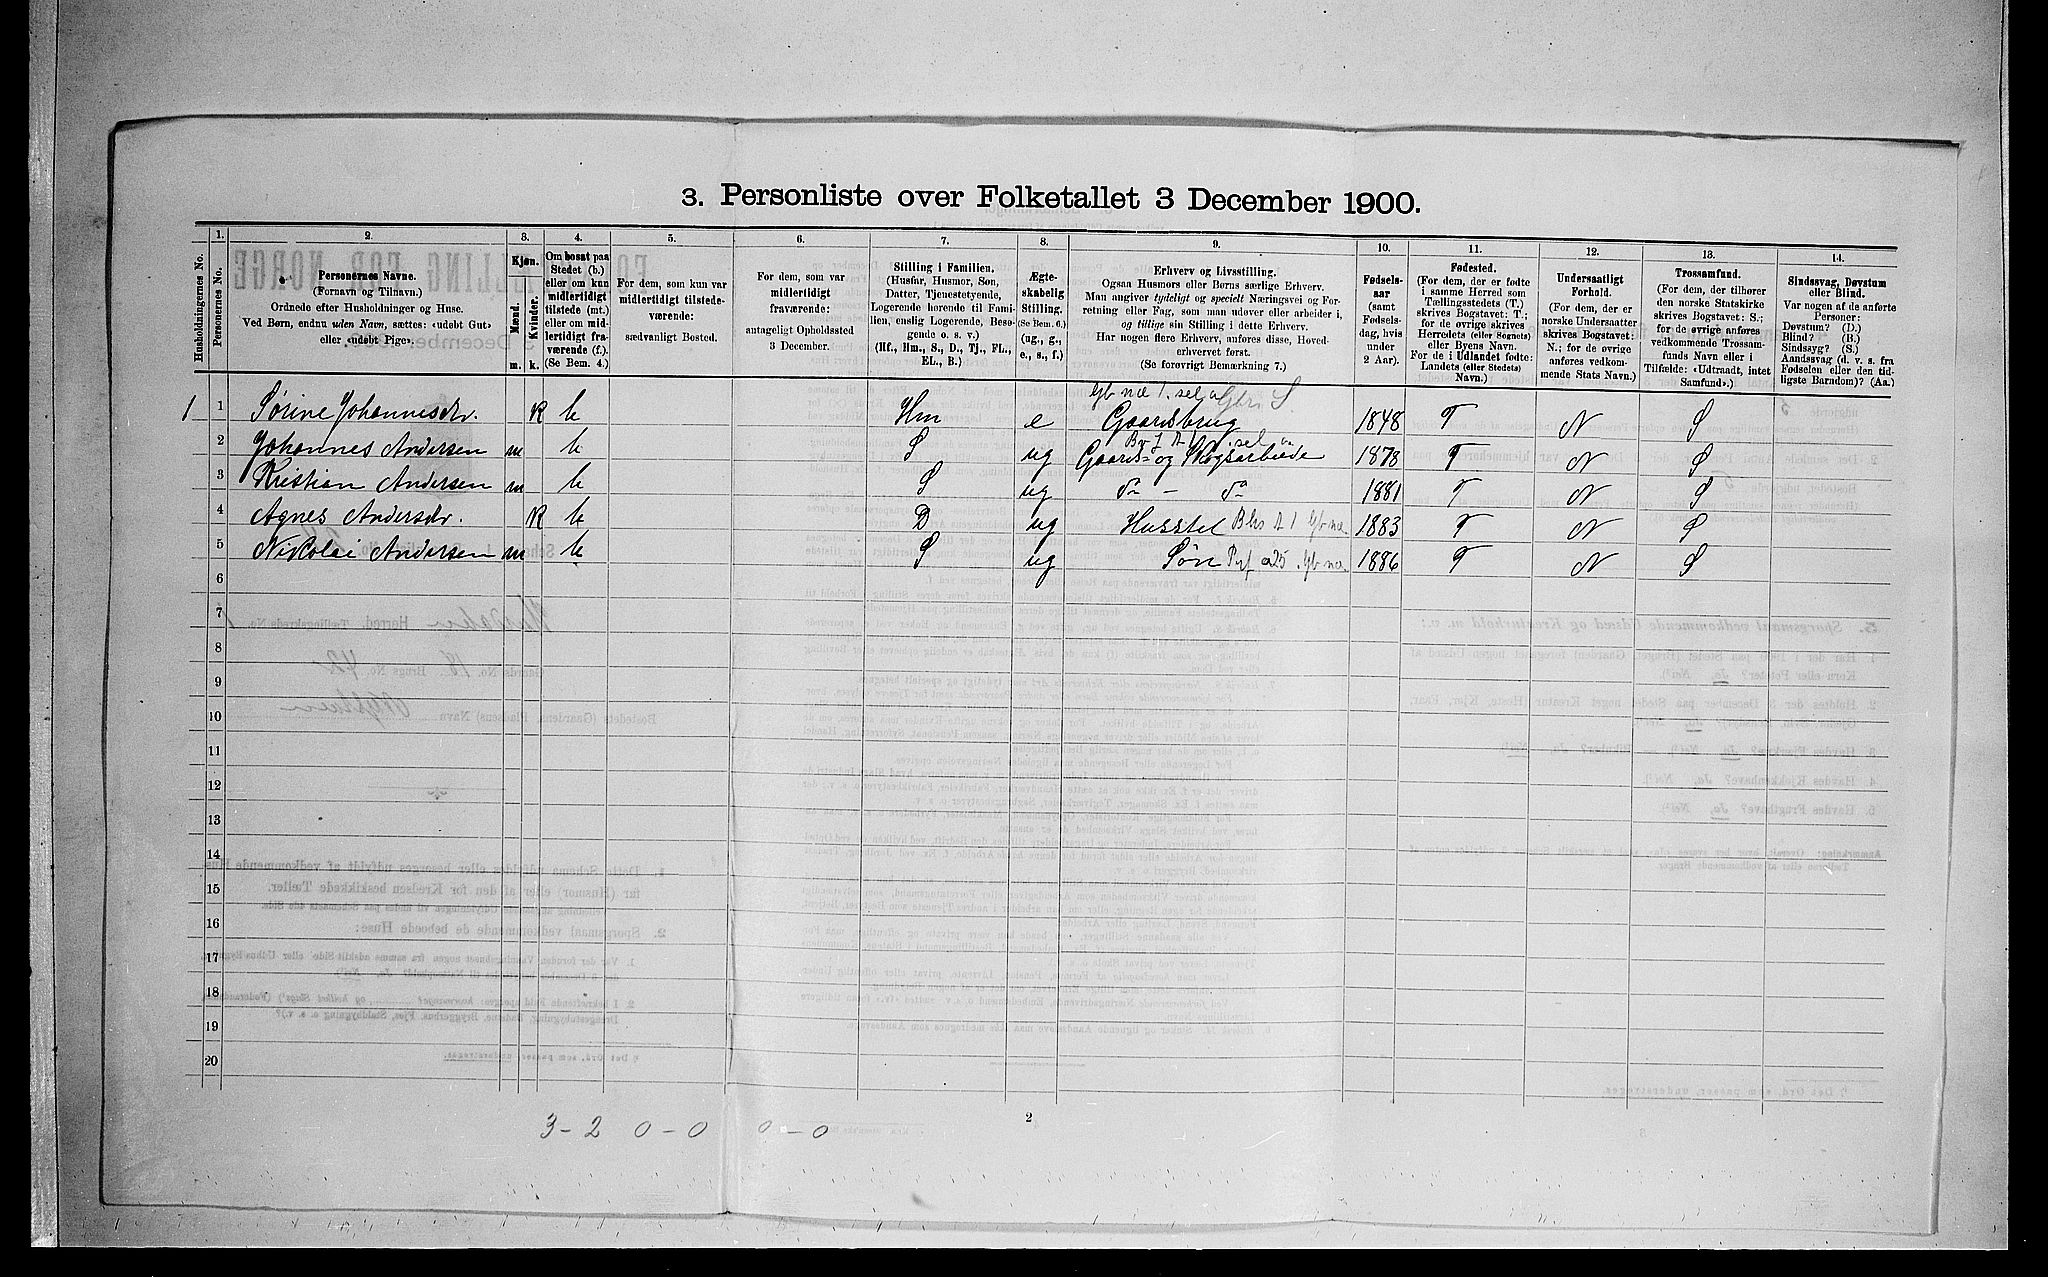 3. Personliste over Folketallet 3 December 1900.
Husholdningernes No.
1.
Personernes No.
2.
Personernes Navne.
(Fornavn og Tilnavn.)
Ordnede efter Husholdninger og Huse.
Ved Børn, endnu uden Navn, sættes: «udøbt Gut»
eller «udøbt Pige».
3.
Kjøn.
Mænd.
Kvinder.
m. k.
4.
Om bosat paa
Stedet (b.)
eller om kun
midlertidigt
tilstede (mt.)
eller om mid-
lertidigt fra-
værende (f.).
(Se Bem. 4.)
5.
For dem, som kun var
midlertidigt tilstede-
værende:
sædvanligt Bosted.
6.
For dem, som var
midlertidigt
fraværende:
antageligt Opholdssted
3 December.
7.
Stilling i Familien.
(Husfar, Husmor, Søn,
Datter, Tjenestetyende,
Logerende hørende til Fami-
lien, enslig Logerende, Besø-
gende o. s. v.)
(Hf., Hm., S., D., Tj., FL.,
EL., B.)
8.
Ægte-
skabelig
Stilling.
(Se Bem. 6.)
(ug., g.,
e., s., f.)
9.
Erhverv og Livsstilling.
Ogsaa Husmors eller Børns særlige Erhverv.
Man angiver tydeligt og specielt Næringsvei og For-
retning eller Fag, som man udøver eller arbeider i,
og tillige sin Stilling i dette Erhverv.
Har nogen flere Erhverv, anføres disse, Hoved-
erhvervet først.
(Se forøvrigt Bemærkning 7.)
10.
Fødsels-
aar
(samt
Fødsels-
dag, hvis
under
2 Aar).
11.
Fødested.
(For dem, der er fødte
i samme Herred som
Tællingsstedets (T.),
skrives Bogstavet: T.;
for de øvrige skrives
Herredets (eller Sognets)
eller Byens Navn.
For de i Udlandet fødte:
Landets (eller Stedets)
Navn.)
12.
Undersaatligt
Forhold.
(For dem, der er
norske Undersaatter
skrives Bogstavet:
N.; for de øvrige
anføres vedkom-
mende Stats Navn.)
13.
Trossamfund.
(For dem, der tilhører
den norske Statskirke
skrives Bogstavet: S.;
for de øvrige anføres
vedkommende Trossam-
funds Navn eller i
Tilfælde: «Udtraadt, intet
Samfund».)
14.
Sindssvag, Døvstum
eller Blind.
Var nogen af de anførte
Personer:
Døvstum? (D.)
Blind? (B.)
Sindssyg? (S.)
Aandssvag (d. v. s. fra
Fødselen eller den tid-
ligste Barndom)? (Aa.)
1 1 Sørine Johannesdr. K b Hm e Gaardsbrug 1848 T N S
2 Johannes Andersen m b S ug Gaards- og Skogsarbeide 1878 T N S
3 Kristian Andersen m b S ug do – do 1881 T N S
4 Agnes Andersdr. K b D ug Husstel 1883 T N S
5 Nikolai Andersen m b S ug Søn 1886 T N S
6
7
8
9
10
11
12
13
14
15
16
17
18
19
20
3-2 0-0 0-0
2